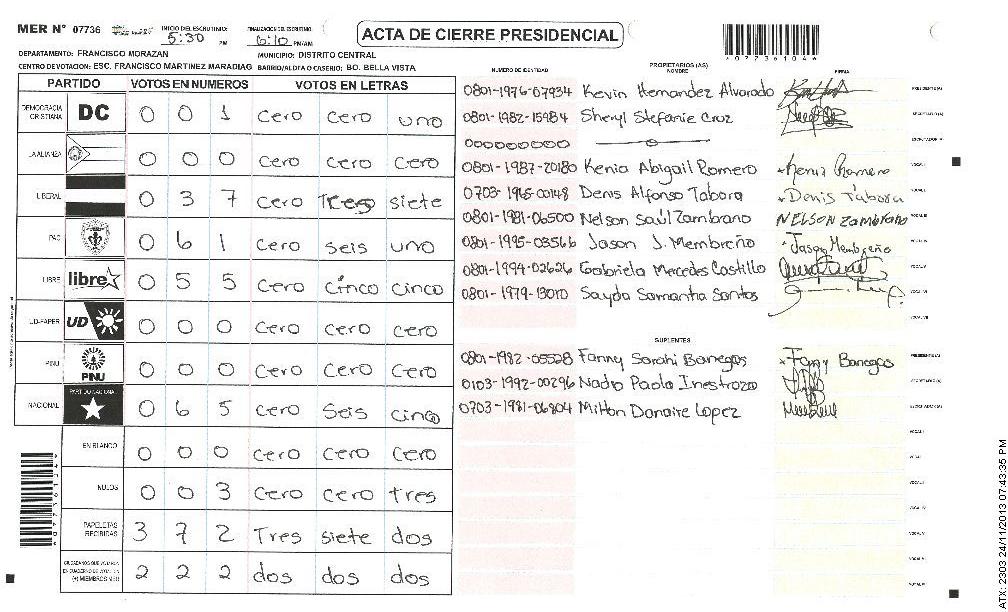 MER N° 07736 INICIO DEL ESCRUTINIO: 5:30 PM FINALIZACION DEL ESCRUTINIO: 6:10 PM/AM
ACTA DE CIERRE PRESIDENCIAL
*077361046*
DEPARTAMENTO: FRANCISCO MORAZAN MUNICIPIO: DISTRITO CENTRAL
CENTRO DE VOTACION: ESC. FRANCISCO MARTINEZ MARADIAG BARRIO/ALDEA O CASERIO: BO. BELLA VISTA
PARTIDO VOTOS EN NUMEROS VOTOS EN LETRAS
DEMOCRACIA CRISTIANA DC 0 0 1 cero cero uno
LA ALIANZA 0 0 0 cero cero cero
LIBERAL 0 3 7 cero Tres siete
PAC 0 6 1 cero seis uno
LIBRE libre 0 5 5 cero cinco cinco
UD-FAPER UD 0 0 0 cero cero cero
PINU PINU 0 0 0 cero cero cero
NACIONAL PARTIDO NACIONAL 0 6 5 cero seis cinco
EN BLANCO 0 0 0 cero cero cero
NULOS 0 0 3 cero cero tres
PAPELETAS RECIBIDAS 3 7 2 Tres siete dos
CIUDADANOS QUE VOTARON EN CUADERNO DE VOTACION (+) MIEMBROS MER 2 2 2 dos dos dos
NUMERO DE IDENTIDAD PROPIETARIOS (AS) NOMBRE FIRMA
0801-1976-07934 Kevin Hernandez Alvarado PRESIDENTE(A)
0801-1982-15984 Sheryl Stefanie Cruz SECRETARIO(A)
000000000 ESCRUTADOR(A)
0801-1987-20180 Kenia Abigail Romero Kenia Romero VOCAL I
0703-1965-00148 Denis Alfonso Tabora Denis Tábora VOCAL II
0801-1981-06500 Nelson Saúl Zambrano NELSON Zambrano VOCAL III
0801-1995-03566 Jason J. Membreño Jason Membreño VOCAL IV
0801-1994-02626 Gabriela Mercedes Castillo VOCAL V
0801-1979-13010 Sayda Samantha Santos VOCAL VI
VOCAL VII
SUPLENTES
0801-1982-05528 Fanny Sarahi Banegas Fanny Banegas PRESIDENTE(A)
0103-1992-00296 Nadia Paola Inestroza SECRETARIO(A)
0703-1981-06804 Milton Donaire Lopez ESCRUTADOR(A)
VOCAL I
VOCAL II
VOCAL III
VOCAL IV
VOCAL V
VOCAL VI
VOCAL VII
ATX: 2303 24/11/2013 07:43:35 PM